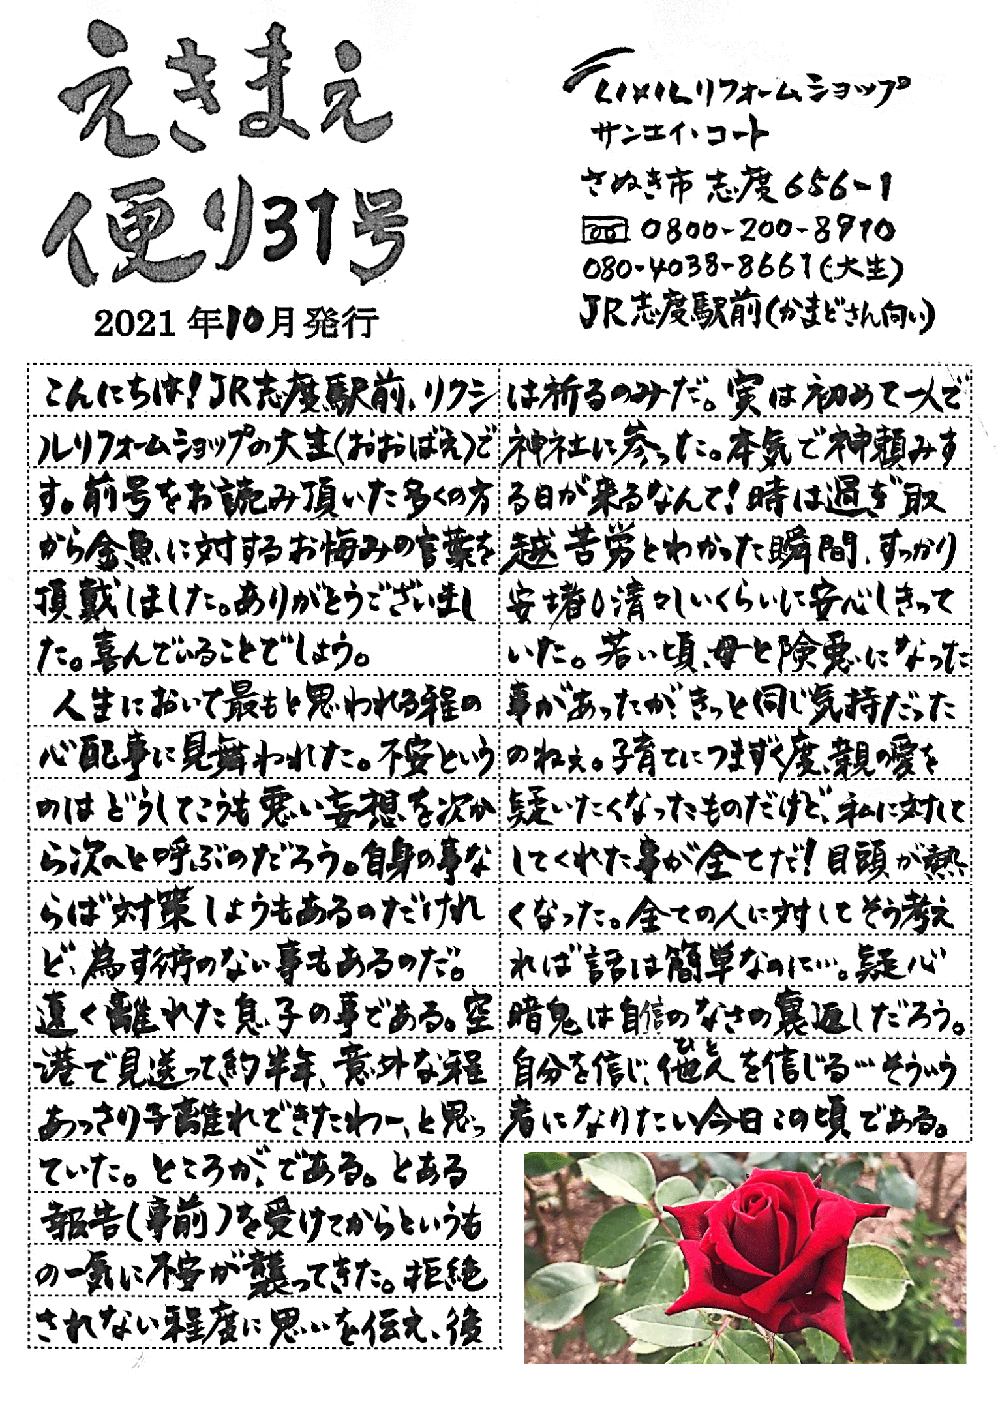 えきまえ
便り31号
2021年10月発行
LIXILリフォームショップ
サンエイ・コート
さぬき市志度656-1
0800-200-8910
080-4038-8661(大生)
JR志度駅前(かまどさん向い)
こんにちは!JR志度駅前、リクシ
ルリフォームショップの大生(おおばえ)で
す。前号をお読み頂いた多くの方
から金魚に対するお悔みの言葉を
頂戴しました。ありがとうございまし
た。喜んでいることでしょう。
人生において最もと思われる程の
心配事に見舞われた。不安という
のはどうしてこうも悪い妄想を次か
ら次へと呼ぶのだろう。自身の事な
らば対策しようもあるのだけれ
ど、為す術のない事もあるのだ。
遠く離れた息子の事である。空
港で見送って約半年、意外な程
あっさり子離れできたわー、と思っ
ていた。ところが、である。とある
報告(事前)を受けてからというも
の一気に不安が襲ってきた。拒絶
されない程度に思いを伝え、後
は祈るのみだ。実は初めて一人で
神社に参った。本気で神頼みす
る日が来るなんて!時は過ぎ取
越苦労とわかった瞬間、すっかり
安堵し清々しいくらいに安心しきって
いた。若い頃、母と険悪になった
事があったがきっと同じ気持だった
のねぇ。子育てにつまずく度、親の愛を
疑いたくなったものだけど、私に対して
してくれた事が全てだ!目頭が熱
くなった。全ての人に対してそう考え
れば話は簡単なのに…。疑心
暗鬼は自信のなさの裏返しだろう。
自分を信じ、他人(ひと)を信じる…そういう
者になりたい今日この頃である。